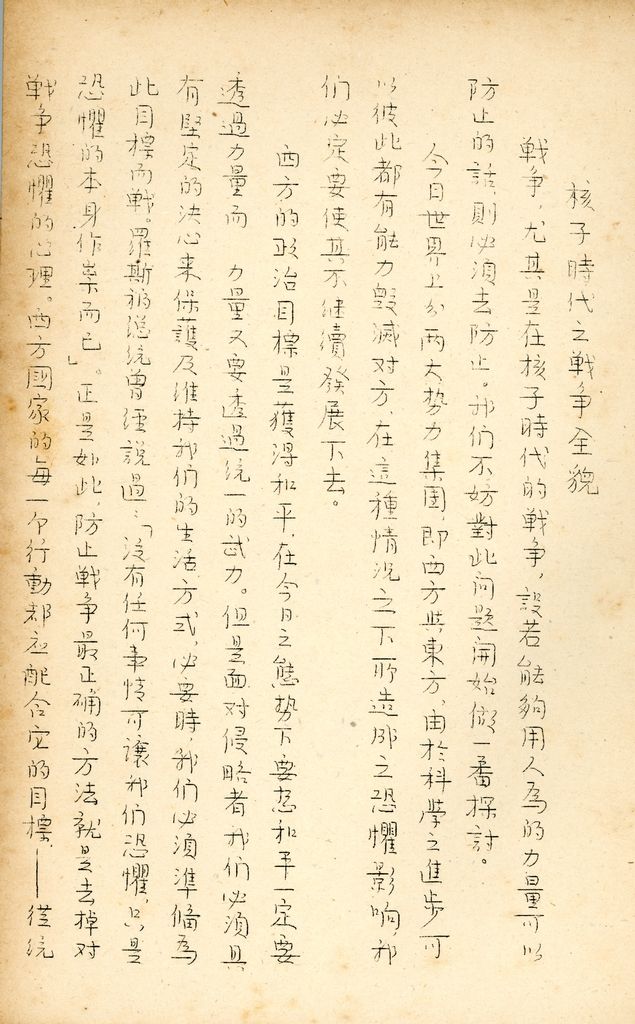 核子時代之戰争全貌
戰争,尤其是在核子時代的戰争,設若能夠用人為的力量可以
防止的話,則必須去防止。我们不妨對此问題開始做一番探討。
今日世界上分两大势力集團,即西方與東方,由於科學之進步可
以彼此都有能力毁滅对方,在這種情況之下所造成之恐懼影响,我
们必定要使其不继續發展下去。
西方的政治目標是獲得和平,在今日之態势下要想和平一定要
透過力量而 力量又要透過统一的武力。但是面对侵略者我们必須具
有堅定的決心来保護及维持我们的生活方式,必要時,我们必須準備為
此目標而戰。羅斯福總统曾經説過:「沒有任何事情可讓我们恐懼,只是
恐懼的本身作祟而已」。正是如此,防止戰争最正确的方法就是去掉对
戰争恐懼的心理。西方國家的每一个行動都应配合它的目標——從统